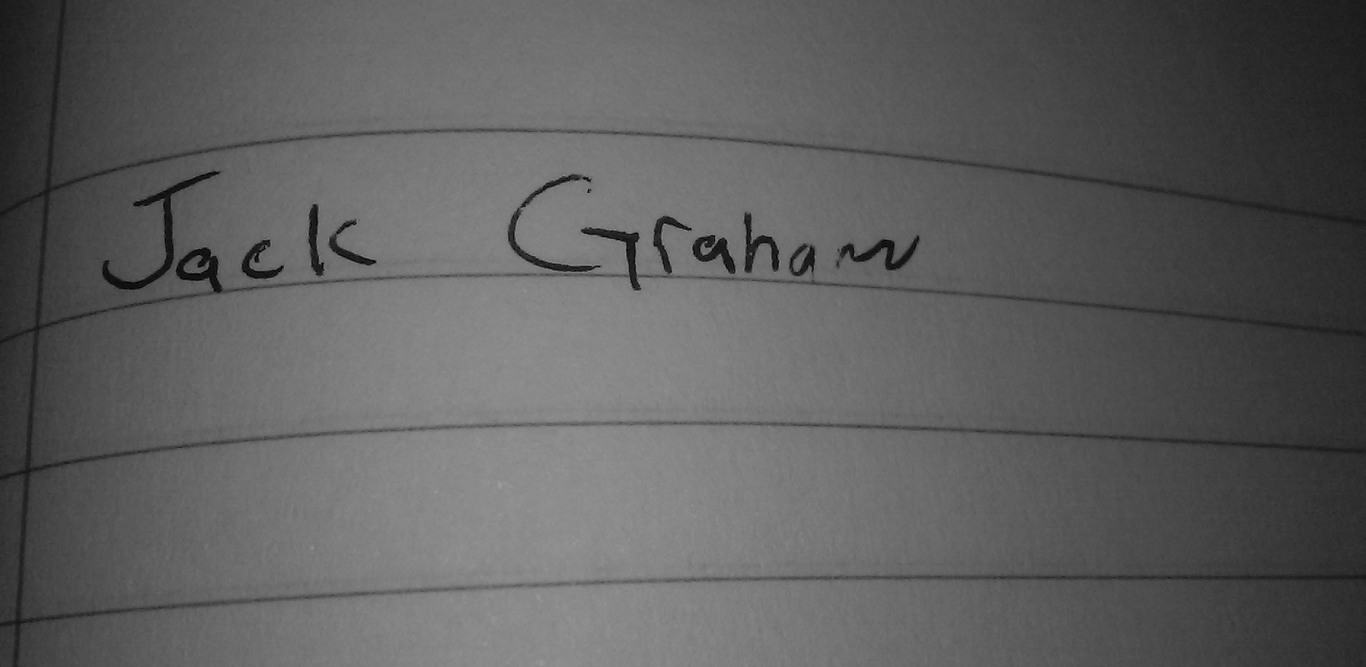 Jack Graham